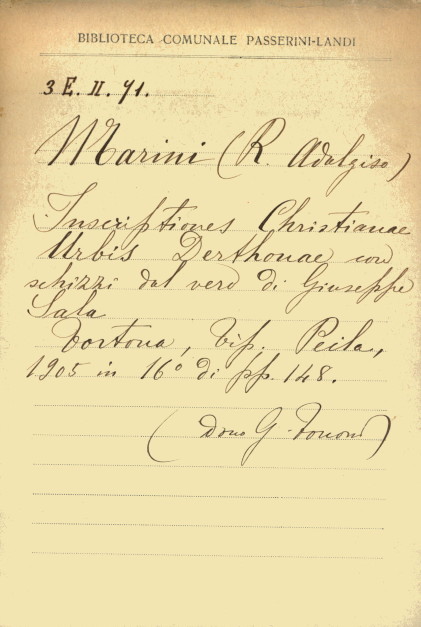 BIBLIOTECA COMUNALE PASSERINI-LANDI
3 E. II. 41.
Marini (R. Adalgiso)
Inscriptiones Christianae
Urbis Derthonae con
schizzi dal vero di Giuseppe
Sala
Tortona, Tip. Peila,
1905 in 16° di pp. 148.
(dono G. Tononi)